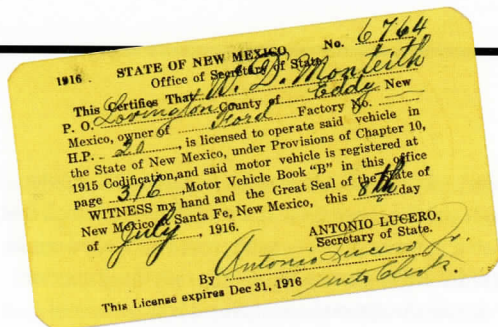 1916 STATE OF NEW MEXICO No. 6764
Office of Secretary of State
This Certifies That W. D. Monteith
P. O. Lovington County of Eddy New
Mexico, owner of Ford Factory No.
H.P. 20, is licensed to operate said vehicle in
the State of New Mexico, under Provisions of Chapter 10,
1915 Codification, and said motor vehicle is registered at
page 316, Motor Vehicle Book "B" in this office
WITNESS my hand and the Great Seal of the State of
New Mexico, Santa Fe, New Mexico, this 8th day
of July, 1916.
ANTONIO LUCERO,
Secretary of State.
By Antonio Lucero Jr.
Auto Clerk.
This License expires Dec 31, 1916